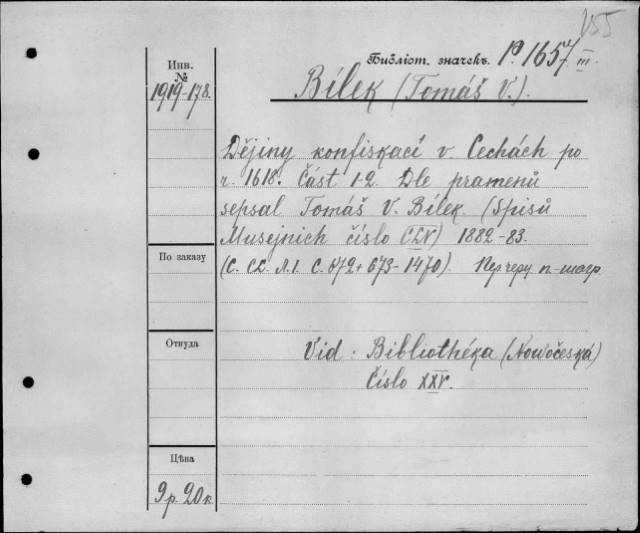 155
Инв.
№
1919-178.
Библіот. значекъ. P. 1657 III.
Bílek (Tomáš V.).
Dějiny konfiskací v. Cechách po
r. 1618. Část 1-2. Dle pramenů
sepsal Tomáš V. Bílek. (Spisů
Musejnich číslo CLV) 1882-83.
По заказу
(C. CL. Л.1. C. 672 + 673-1470).
Откуда
Vid: Bibliothéka (Nowočeská)
Číslo XXV.
Цѣна
9 р. 20 к